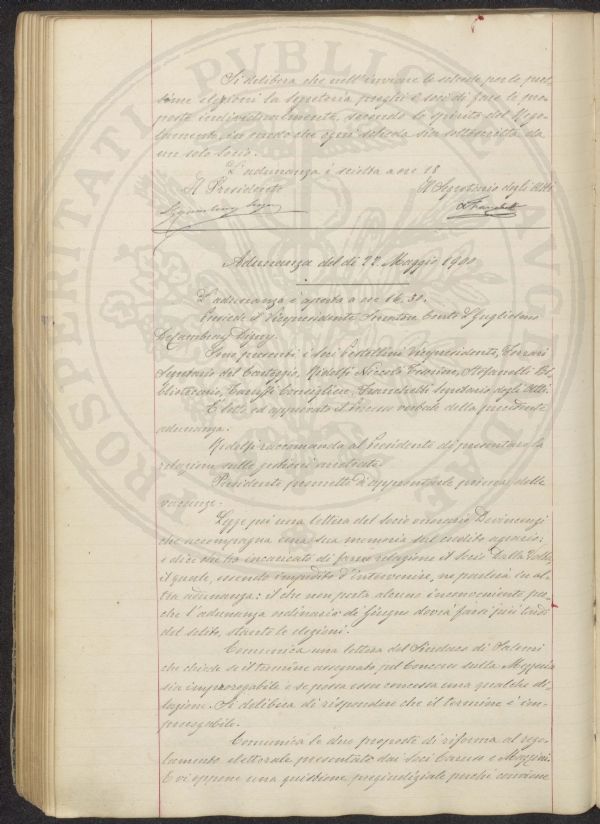 Si delibera che nell'inviare le schede per le pros-
sime elezioni la Segreteria preghi i soci di fare le pro-
poste individualmente, secondo lo spirito del Rego-
lamento, in modo che ogni scheda sia sottoscritta da
un solo socio.
L'adunanza è sciolta a ore 18
Il Presidente Il Segretario degli Atti
Adunanza del dì 22 Maggio 1900
L'adunanza è aperta a ore 16.30.
Presiede il Vicepresidente Senatore Conte Guglielmo
De Cambray Digny.
Sono presenti i soci Vicepresidente, Ferrari
Segretario del Carteggio, Ridolfi Niccolò Stefanelli Bi-
bliotecario, Consigliere, Franchetti Segretario degli Atti.
È letto ed approvato il Processo verbale della precedente
adunanza.
Ridolfi raccomanda al Presidente di presentare la
relazione sulle gestioni arretrate.
Presidente promette d' prima delle
vacanze.
Legge poi una lettera del socio onorario Devincenzi
che accompagna una sua memoria sul credito agrario:
e dice che ha incaricato di farne relazione il socio Dalla Volta,
il quale, essendo impedito d'intervenire, ne parlerà in al-
tra adunanza: il che non porta alcuno inconveniente per-
chè l'adunanza ordinaria di Giugno dovrà farsi più tardi
del solito, stante le elezioni.
Comunica una lettera del Sindaco di Salemi
che chiede se il termine assegnato pel Concorso sulla Mezzeria
sia improrogabile e se possa esser concessa una qualche di-
lazione. Si delibera di rispondere che il termine è im-
prorogabile.
Comunica le due proposte di riforma al rego-
lamento elettorale presentate dai soci Caruso e Mazzini.
E vi oppone una quistione pregiudiziale perchè conviene